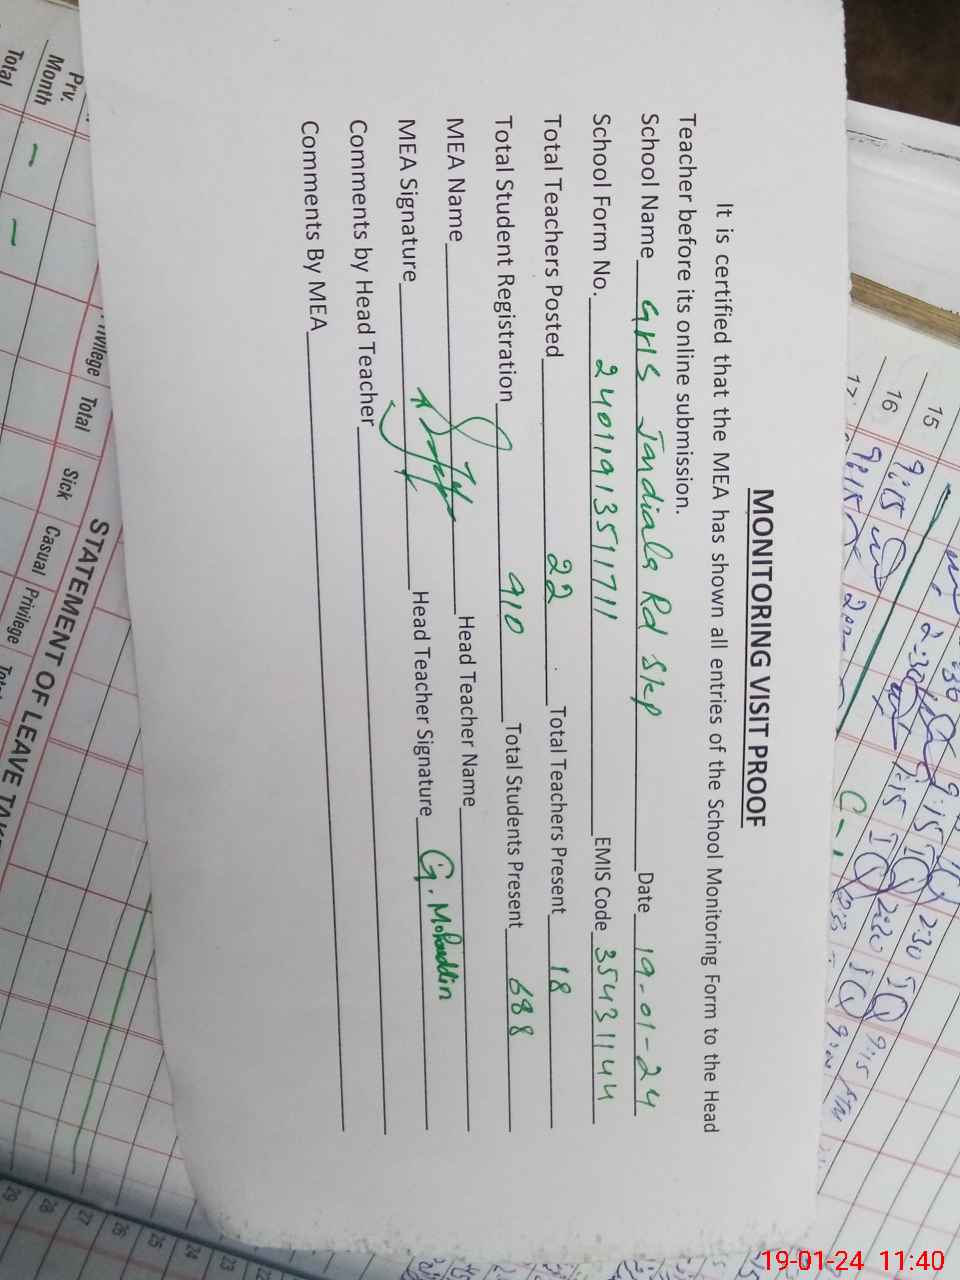 MONITORING VISIT PROOF
It is certified that the MEA has shown all entries of the School Monitoring Form to the Head
Teacher before its online submission.
School Name GHS Jandiala Rd Skp Date 19-01-24
School Form No. 2401191351711 EMIS Code 35431144
Total Teachers Posted 22 Total Teachers Present 18
Total Student Registration 910 Total Students Present 688
MEA Name Head Teacher Name
MEA Signature Head Teacher Signature G. Mohauddin
Comments by Head Teacher
Comments By MEA
STATEMENT OF LEAVE
Sick Casual Privilege
Privilege Total
Prv.
Month
Total
15
16
17
9:15
9:15
2:30
9:15
2:30
9:15
2:20
9:15
29
28
27
26
25
24
23
19-01-24 11:40